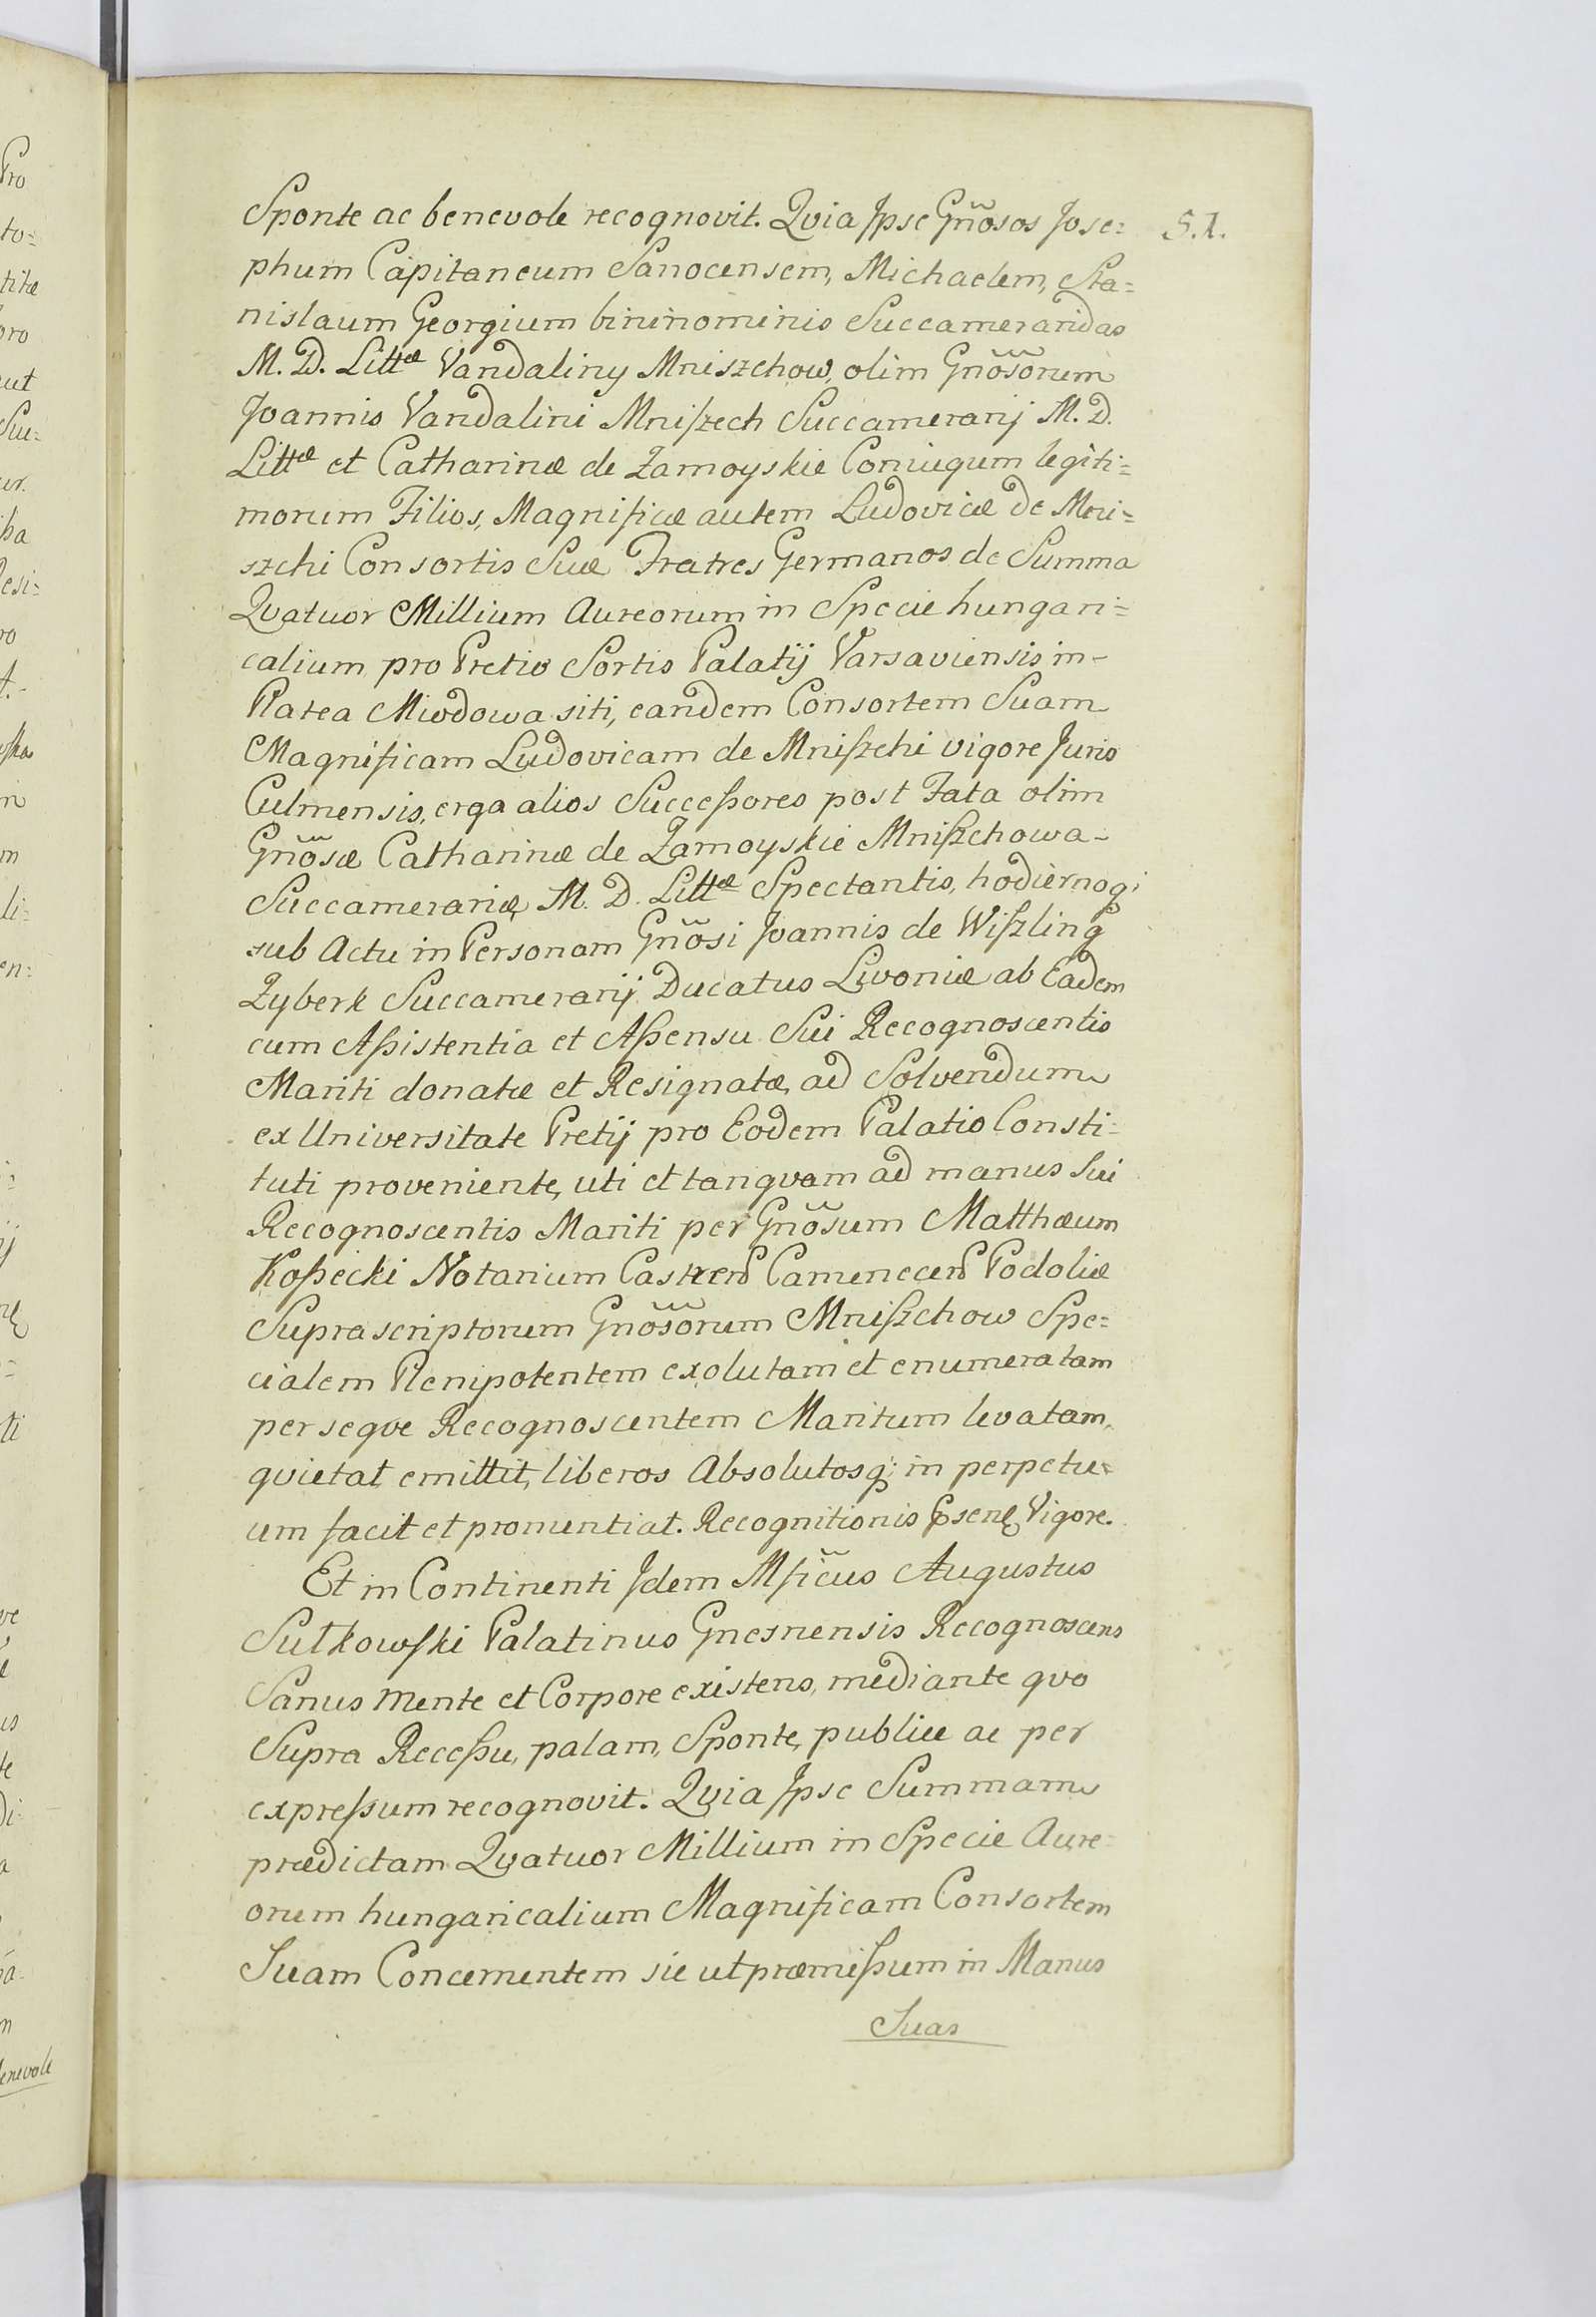 Sponte ac benevole recognovit. Qvia Jpse Gn̄osos Jose=
S.1.
phum Capitaneum Sanocensem, Michaelem, Sta=
nislaum Georgium bininominis Succameraridas
M. D. Littæ Vandaliny Mniszchow, olim Gn̄osorum
Joannis Vandalini Mniszech Succamerarij M. D.
Littæ et Catharinæ de Zamoyskie Coniugum legiti=
morum Filios, Magnificæ autem Ludovicæ de Mni=
szchi Consortis Suæ Fratres Germanos de Summa
Qvatuor Millium Aureorum in Specie hungari=
calium pro Pretio Sortis Palatij Varsaviensis in-
Platea Miodowa siti, eandem Consortem Suam
Magnificam Ludovicam de Mniszchi vigore Juris
Culmensis, erga alios Successores post Fata olim
Gn̄osæ Catharinæ de Zamoyskie Mniszchowa-
Succamerariæ M. D. Littæ Spectantis, hodiernoq;
sub Actu in Personam Gn̄osi Joannis de Wiszling
Zyberk Succamerarij Ducatus Livoniæ ab Eadem
cum Assistentia et Assensu Sui Recognoscentis
Mariti donatæ et Resignatæ, ad Solvendum
ex Universitate Pretij pro Eodem Palatio Consti=
tuti proveniente, uti et tanqvam ad manus Sui
Recognoscentis Mariti per Gn̄osum Matthæum
Kossecki Notarium Castren̄ Camenecen̄ Podoliæ
Supra scriptorum Gn̄osorum Mniszchow Spe=
cialem Plenipotentem exolutam et enumeratam
per seqve Recognoscentem Maritum levatam,
qvietat, emittit, liberos Absolutosq; in perpetu-
um facit et pronuntiat. Recognitionis Psenę Vigore.
Et in Continenti Jdem Mficus Augustus
Sułkowski Palatinus Gnesnensis Recognoscens
Sanus mente et Corpore existens, mediante qvo
Supra Recessu, palam, Sponte, publice ac per
expressum recognovit. Qvia Jpse Summam
prædictam Qvatuor Millium in Specie Aure=
orum hungaricalium Magnificam Consortem
Suam Concernentem sic ut præmissum in Manus
Suas